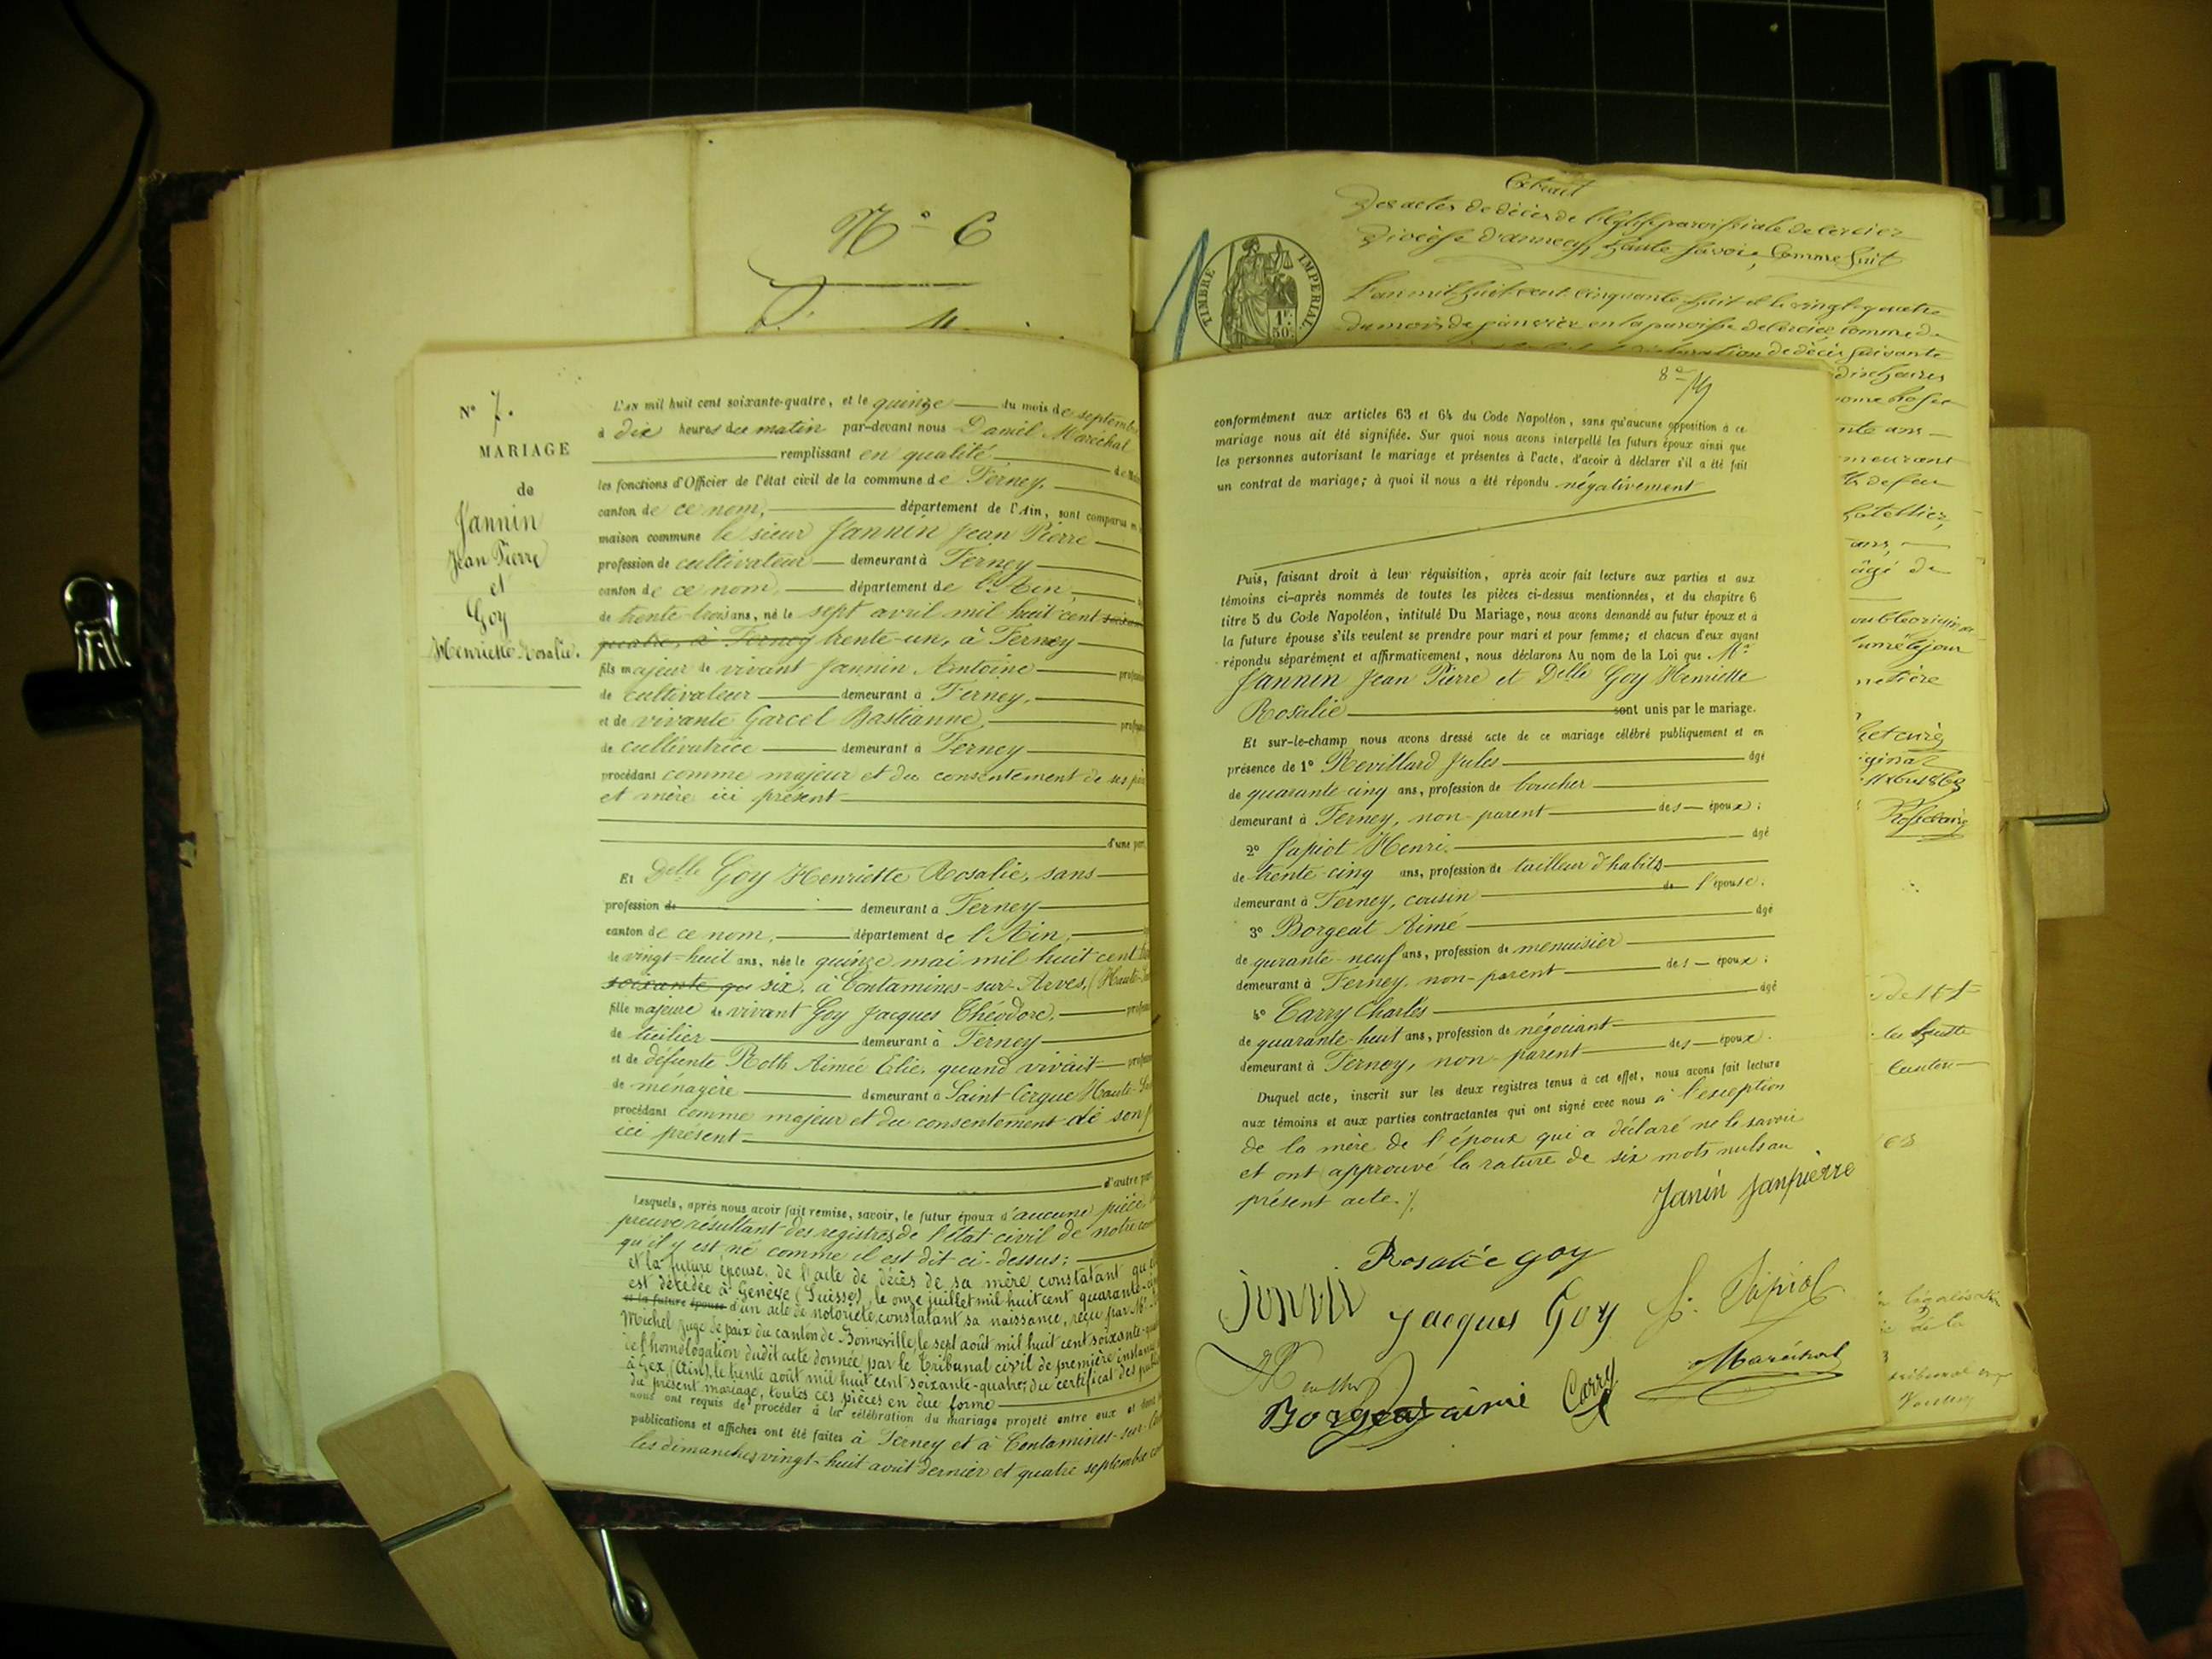 N° 6
N° 7.
MARIAGE
de
Jannin
Jean Pierre
et
Goy
Henriette Rosalie.
L'AN mil huit cent soixante-quatre, et le quinze du mois de septembre
à dix heures du matin par-devant nous Daniel Maréchal
remplissant en qualité de
les fonctions d'Officier de l'état civil de la commune de Ferney,
canton de ce nom, département de l'Ain, sont comparus en
maison commune le sieur Jannin Jean Pierre
profession de cultivateur demeurant à Ferney
canton de ce nom, département de l'Ain,
de trente trois ans, né le sept avril mil huit cent
quatre, à Ferney trente-un, à Ferney
fils majeur de vivant Jannin Antoine
de cultivateur demeurant à Ferney,
et de vivante Garcel Bastianne,
de cultivatrice demeurant à Ferney
procédant comme majeur et du consentement de ses
et mère ici présent
d'une part
Et Delle Goy Henriette Rosalie, sans
profession de demeurant à Ferney
canton de ce nom, département de l'Ain,
de vingt-huit ans, née le quinze mai mil huit cent
soixante qu six, à Contamines-sur-Arves, (Haute-
fille majeure de vivant Goy Jacques Théodore,
de tuilier demeurant à Ferney
et de défunte Roth Aimée Elie, quand vivait
de ménagère demeurant à Saint-Cergue Haute-
procédant comme majeur et du consentement de son
ici présent
d'autre part
Lesquels, après nous avoir fait remise, savoir, le futur époux d'aucune pièce
preuve résultant des registres de l'état civil de notre
qu'il y est né comme il est dit ci-dessus;
et la future épouse, de l'acte de décès de sa mère constatant qu'
est décédée à Genève (Suisse), le onze juillet mil huit cent quarante-
et la future épouse d'un acte de notoriété, constatant sa naissance, reçu par Mr
Michel juge de paix du canton de Bonneville, le sept août mil huit cent soixante-
et l'homologation dudit acte donnée par le Tribunal civil de première
à Gex, (Ain), le trente août mil huit cent soixante-quatre; du certificat des
du présent mariage, toutes ces pièces en due forme
nous ont requis de procéder à la célébration du mariage projeté entre eux et dont
publications et affiches ont été faites à Ferney et à Contamines-sur-
les dimanches vingt-huit août dernier et quatre septembre
Extrait
Des actes de décès de l'Eglise paroissiale de Cercier
Diocèse d'annecy, haute Savoie, Comme Suit
TIMBRE IMPERIAL
1F. 50c.
L'an mil huit cent cinquante huit et le vingt quatre
du mois de janvier en la paroisse de Cercier
de décès suivante
conformément aux articles 63 et 64 du Code Napoléon, sans qu'aucune opposition à ce
mariage nous ait été signifiée. Sur quoi nous avons interpellé les futurs époux ainsi que
les personnes autorisant le mariage et présentes à l'acte, d'avoir à déclarer s'il a été fait
un contrat de mariage; à quoi il nous a été répondu négativement
Puis, faisant droit à leur réquisition, après avoir fait lecture aux parties et aux
témoins ci-après nommés de toutes les pièces ci-dessus mentionnées, et du chapitre 6
titre 5 du Code Napoléon, intitulé Du Mariage, nous avons demandé au futur époux et à
la future épouse s'ils veulent se prendre pour mari et pour femme; et chacun d'eux ayant
répondu séparément et affirmativement, nous déclarons Au nom de la Loi que Mr
Jannin Jean Pierre et Delle Goy Henriette
Rosalie sont unis par le mariage.
Et sur-le-champ nous avons dressé acte de ce mariage célébré publiquement et en
présence de 1° Revillard Jules âgé
de quarante cinq ans, profession de boucher
demeurant à Ferney, non-parent des époux;
2° Japiot Henri. âgé
de trente-cinq ans, profession de tailleur d'habits
demeurant à Ferney, cousin de l'épouse.
3° Borgeat Aimé âgé
de qurante-neuf ans, profession de menuisier
demeurant à Ferney, non-parent des époux;
4° Carry Charles âgé
de quarante-huit ans, profession de négociant
demeurant à Ferney, non-parent des époux.
Duquel acte, inscrit sur les deux registres tenus à cet effet, nous avons fait lecture
aux témoins et aux parties contractantes qui ont signé avec nous à l'exception
de la mère de l'époux qui a déclaré ne le savoir
et ont approuvé la rature de six mots nuls au
présent acte.
Janin Janpierre
Rosalie goy
Jacques Goy
Maréchal
Borgeat aimé
Carry